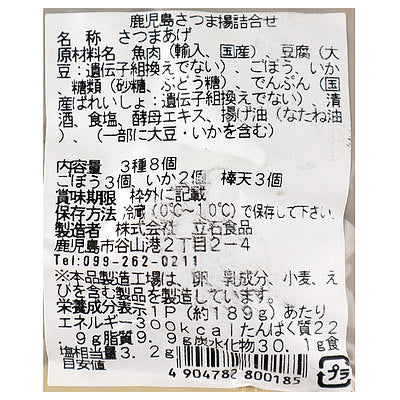 鹿児島さつま揚詰合せ
名　称　さつまあげ
原材料名　魚肉（輸入、国産）、豆腐（大
豆：遺伝子組換えでない）、ごぼう、いか
、糖類（砂糖、ぶどう糖）、でんぷん（国
産ばれいしょ：遺伝子組換えでない）、清
酒、食塩、酵母エキス、揚げ油（なたね油
）、（一部に大豆・いかを含む）
内容量　３種８個
ごぼう３個　いか２個　棒天３個
賞味期限　枠外に記載
保存方法　冷蔵（０℃～１０℃）で保存して下さい。
製造者　株式会社　立石食品
鹿児島市谷山港２丁目２－４
Tel:099-262-0211
※本品製造工場は、卵、乳成分、小麦、え
びを含む製品を製造しています。
栄養成分表示１Ｐ（約１８９ｇ）あたり
エネルギー３００ｋｃａｌたんぱく質２２
．９ｇ脂質９．９ｇ炭水化物３０．１ｇ食
塩相当量３．２ｇ
目安値
4 904782 800185
プラ